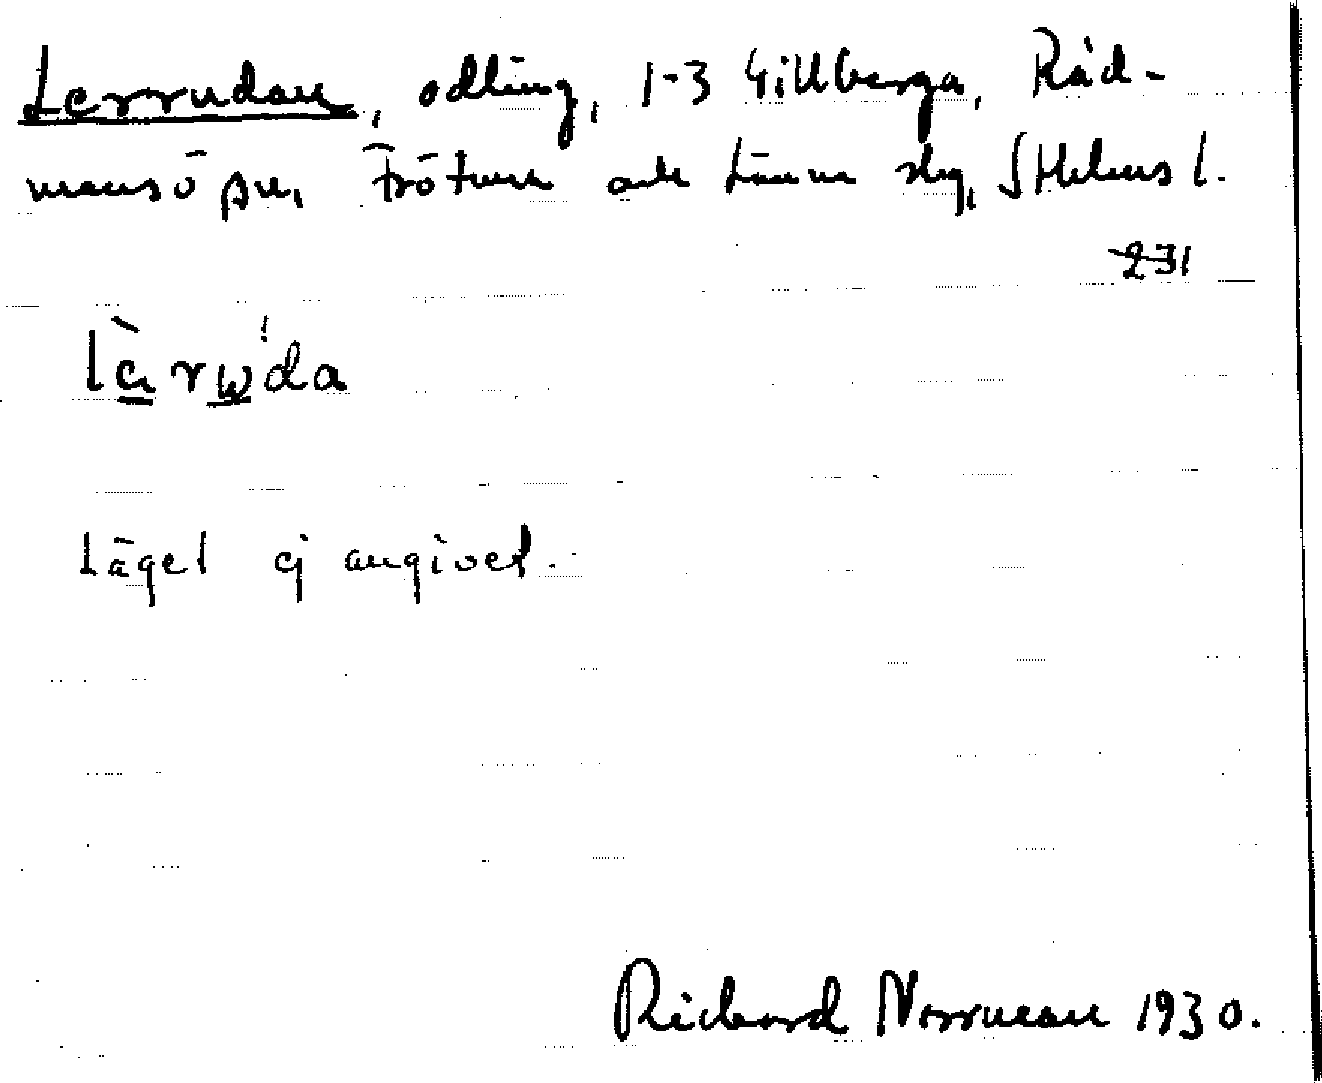 Lerrudan, odling, 1-3 Gillberga, Råd-
mansö sn, Frötuna och Länna skg, Sthlms l.
231
Läget ej angivet.
Richard Norrman 1930.